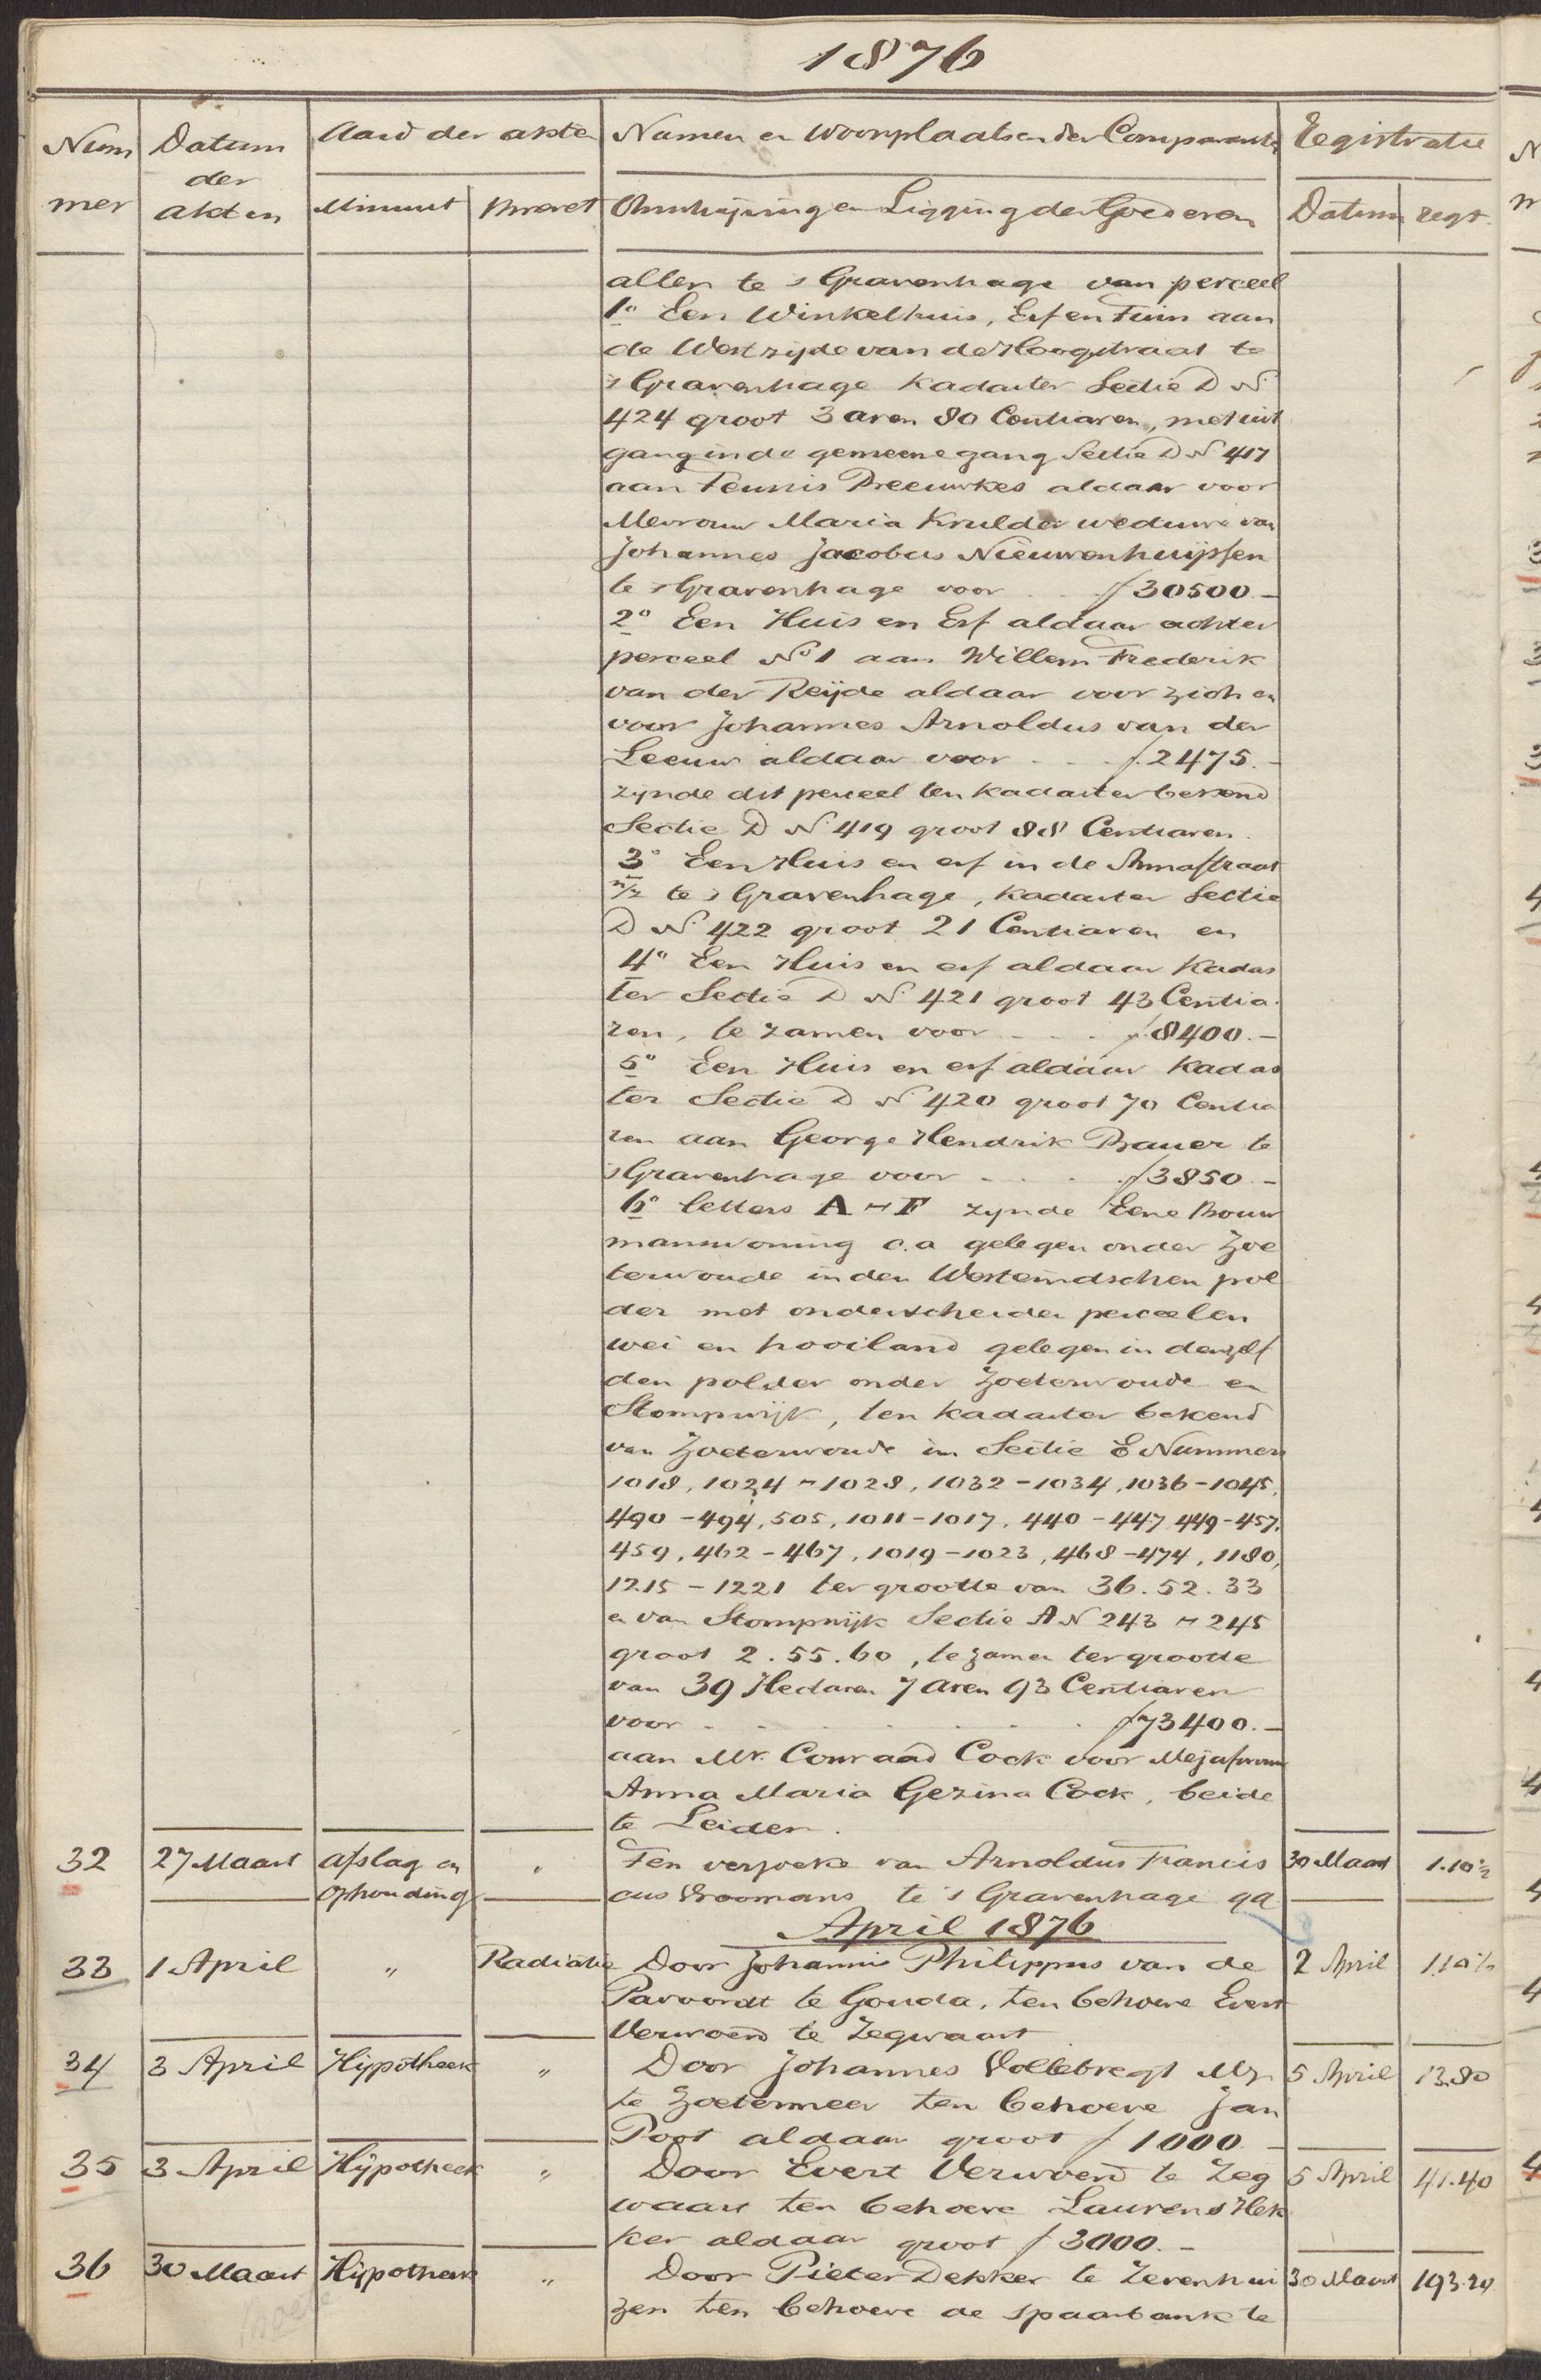 1876
Nummer Datum der akten Aard der akten Namen en Woonplaatsen der Comparanten Registratie
Minuut Brevet Omschrijving en Ligging der Goederen Datum regt.
allen te s Gravenhage van perceel
1o Een Winkelhuis, Erf en Tuin aan
de Westzijde van de Hoogstraat te
s Gravenhage Kadaster Sectie D N
424 groot 3 aren 80 Centiaren, met uit
gang in de gemeene gang Sectie D N 417
aan Teunis Preeuwkes aldaar voor
Mevrouw Maria Krulder weduwe van
Johannes Jacobus Nieuwenhuijssen
te s Gravenhage voor f 30500.-
2o Een Huis en Erf aldaar achter
perceel No 1 aan Willem Frederik
van der Reijde aldaar voor zich en
voor Johannes Arnoldus van der
Leeuw aldaar voor f. 2475.-
zynde dit perceel ten Kadaster bekend
Sectie D N 419 groot 88 Centiaren.
3o Een Huis en erf in de Annastraat
n/z te s Gravenhage, Kadaster Sectie
D N 422 groot 21 Centiaren en
4o Een Huis en erf aldaar Kadas
ter Sectie D N 421 groot 43 Centia
ren, te zamen voor f 8400.-
5o Een Huis en erf aldaar Kadas
ter Sectie D N 420 groot 70 Centia
ren aan George Hendrik Bauer te
s Gravenhage voor f 3850.-
6o letters A - F zynde Eene Bouw
manswoning c.a gelegen onder Zoe
terwoude in den Westeindschen pol
der met onderscheiden perceelen
wei en hooiland gelegen in denzelf
den polder onder Zoeterwoude en
Stompwijk, ten Kadaster bekend
van Zoeterwoude in Sectie E Nummers
1018, 1024 - 1028, 1032 - 1034, 1036 - 1045,
490 - 494, 505, 1011 - 1017, 440 - 447, 449 - 457,
459, 462 - 467, 1019 - 1023, 468 - 474, 1180,
1215 - 1221 ter grootte van 36.52.33
en van Stompwijk Sectie A N 243 - 245
groot 2.55.60, te zamen ter grootte
van 39 Hectaren 7 Aren 93 Centiaren
voor f 73400.-
aan Mr. Conraad Cock voor Mejufvrouw
Anna Maria Gezina Cock, beide
te Leiden.
32 27 Maart afslag en " Ten verzoeke van Arnoldus Francis 30 Maart 1.10½
ophouding cus Vroomans te 's Gravenhage qq
April 1876
33 1 April " Radiatie Door Johannis Philippus van de 2 April 1.10½
Pavoordt te Gouda, ten behoeve Evert
Verwoerd te Zegwaart
34 3 April Hypotheek " Door Johannes Vollebregt Mz. 5 April 13.80
te Zoetermeer ten behoeve Jan
Poot aldaar groot f 1000 -
35 3 April Hypotheek " Door Evert Verwoerd te Zeg 5 April 41.40
waart ten behoeve Laurens Hek
ker aldaar groot f 3000.-
36 30 Maart Hypotheek " Door Pieter Dekker te Zevenhui 30 Maart 193.20
zen ten behoeve de spaarbank te